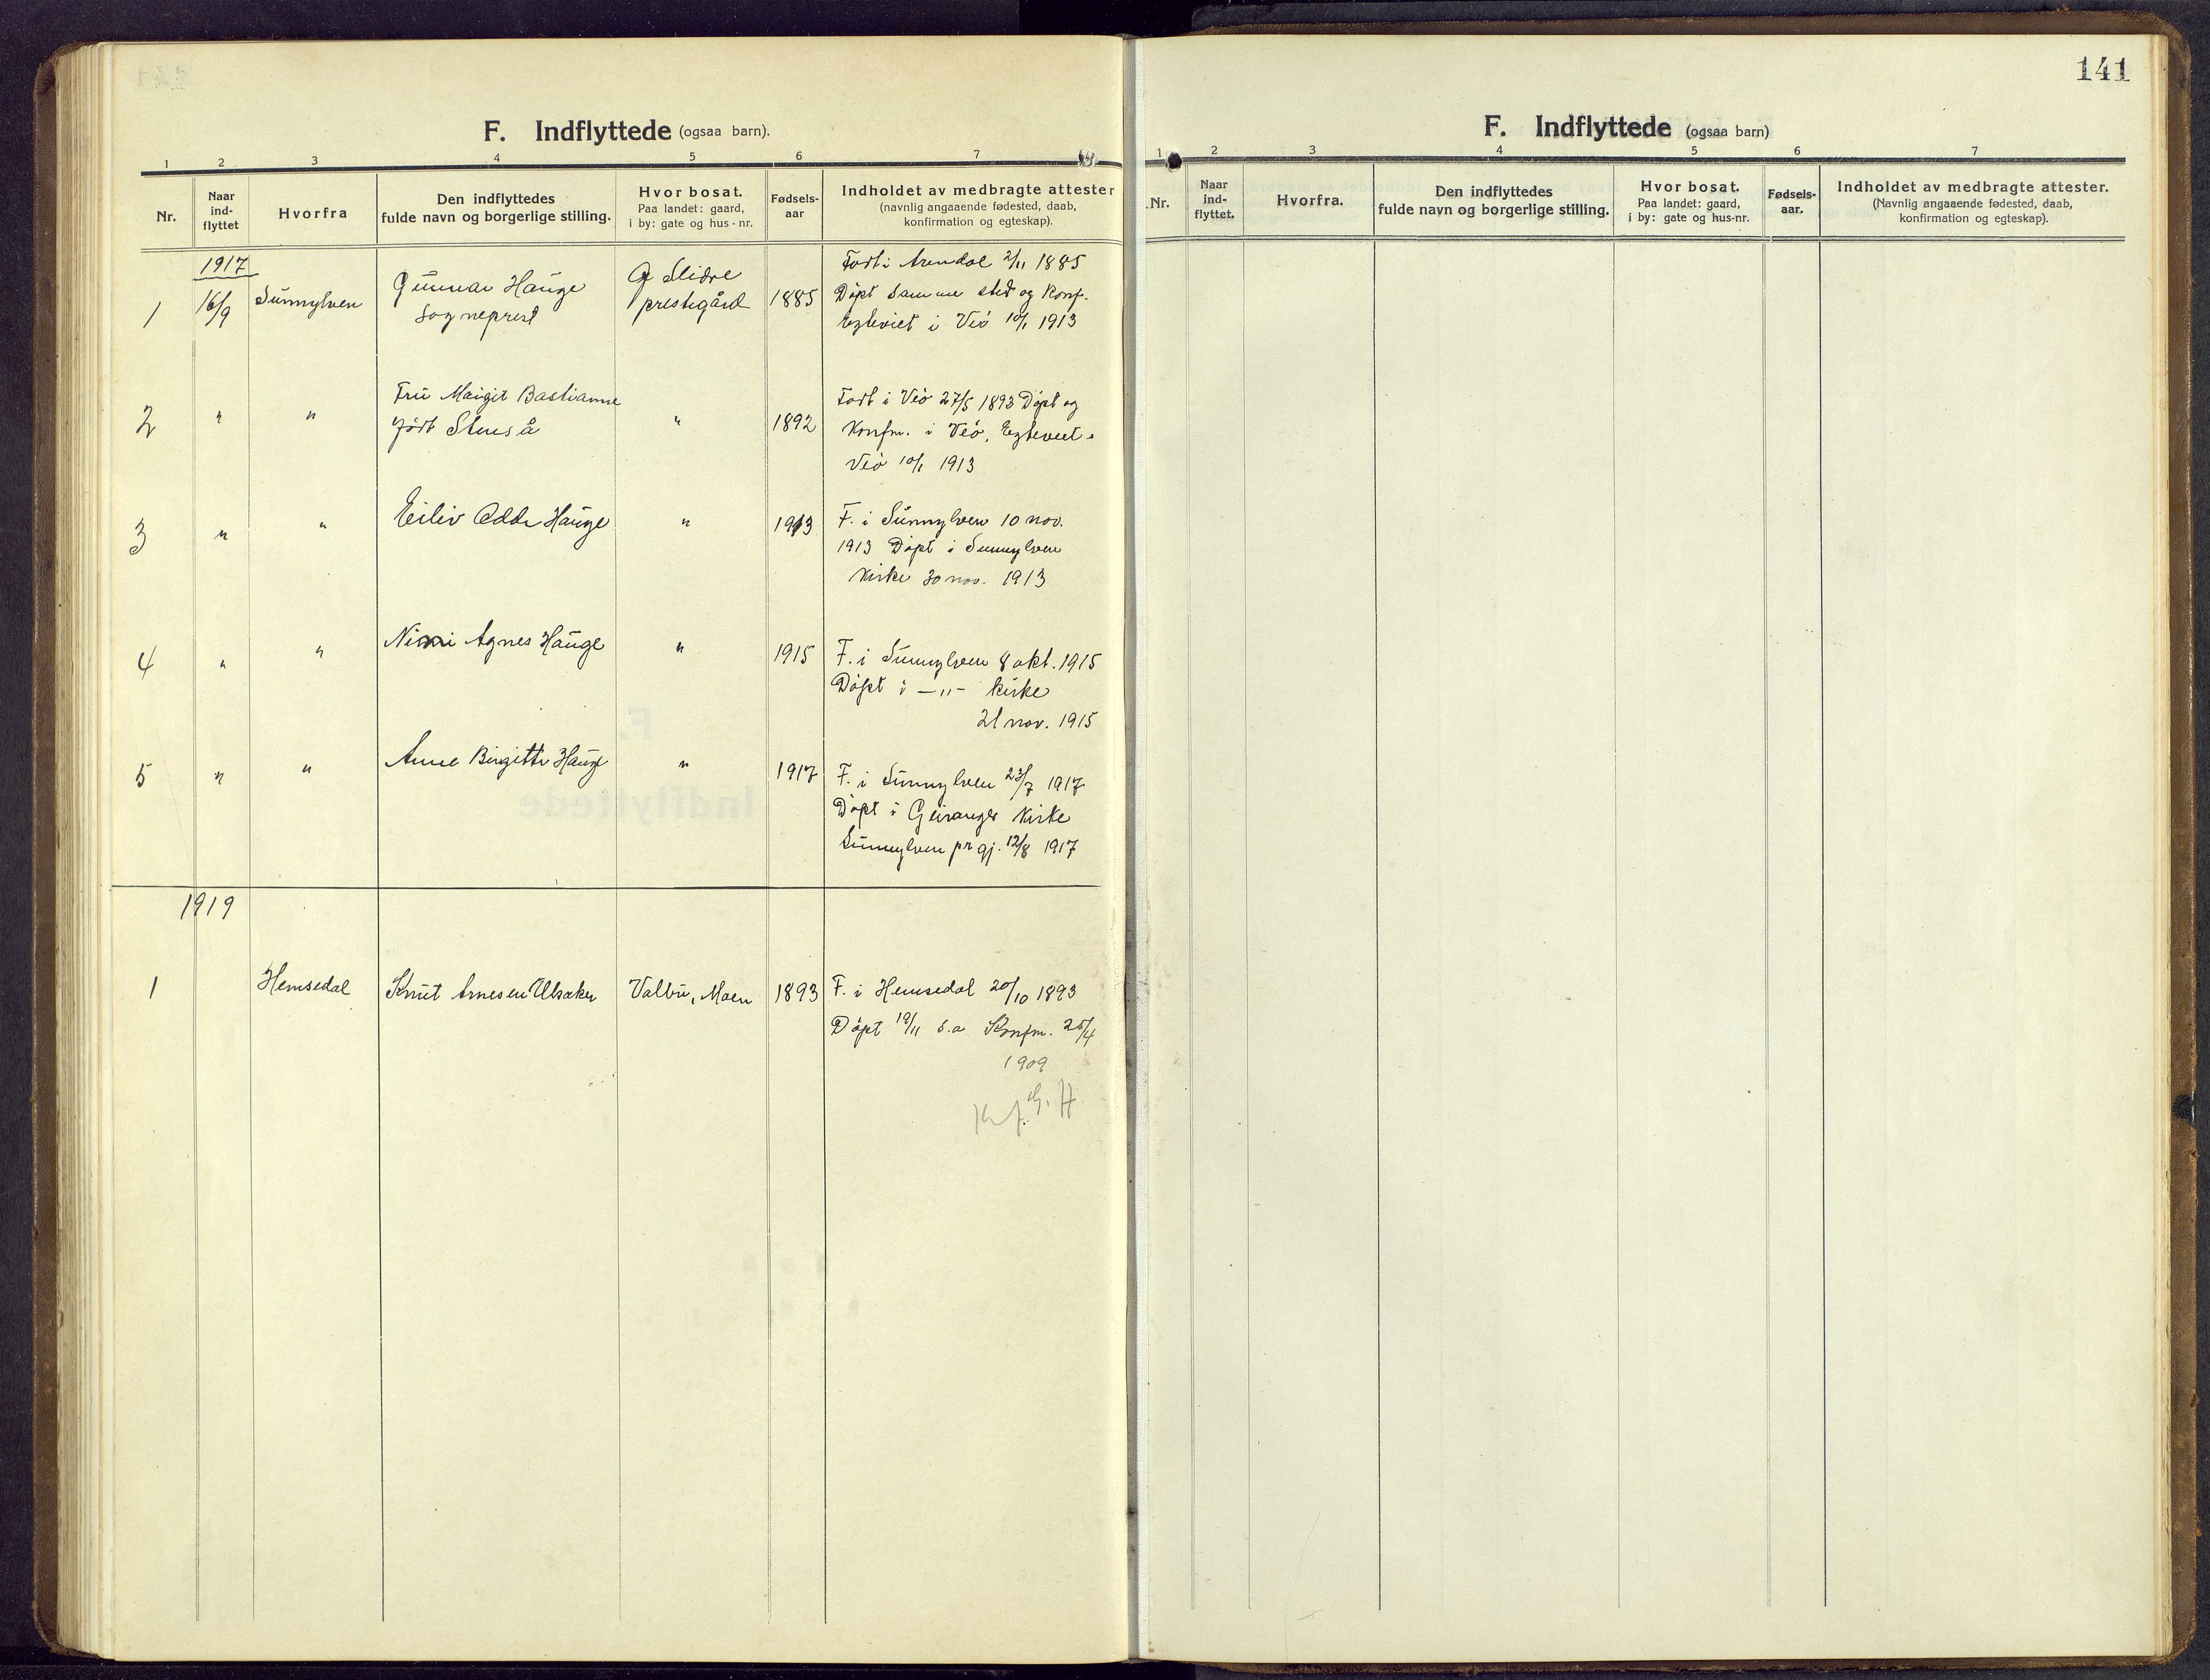 F. Indflyttede (ogsaa barn).
1 2 3 4 5 6 7
Nr. Naar ind-flyttet Hvorfra Den indflyttedes fulde navn og borgerlige stilling. Hvor bosat. Paa landet: gaard, i by: gate og hus-nr. Fødsels-aar Indholdet av medbragte attester (navnlig angaaende fødested, daab, konfirmation og egteskap).
1917
1 16/9 Sunnylven Gunnar Hauge sogneprest Slidre prestegård 1885 Født i Arendal 2/11 1885
Døpt samme sted og konf.
Egteviet i Veø 10/1 1913
2 " " Fru Margit Bastianne
født Stuså " 1892 Født i Veø 27/5 1893 Døpt og
Konfm. i Veø, Egteviet i
Veø 10/1 1913
3 " " Eiliv Odde Hauge " 1913 F. i Sunnylven 10 nov.
1913 Døpt i Sunnylven
kirke 30 nov. 1913
4 " " Ninni Agnes Hauge " 1915 F. i Sunnylven 8 okt. 1915
Døpt i —"— kirke
21 nov. 1915
5 " " Anne Birgitte Hauge " 1917 F. i Sunnylven 23/7 1917
Døpt i Geiranger kirke
Sunnylven prgj. 12/8 1917
1919
1 Hemsedal Knut Arnesen Ulsaker Valbu, Moen 1893 F. i Hemsedal 20/10 1893
Døpt 19/11 s.a Konfm. 25/4
1909
G. H
141
F. Indflyttede (ogsaa barn)
1 2 3 4 5 6 7
Nr. Naar ind-flyttet. Hvorfra. Den indflyttedes fulde navn og borgerlige stilling. Hvor bosat. Paa landet: gaard, i by: gate og hus-nr. Fødsels-aar. Indholdet av medbragte attester. (Navnlig angaaende fødested, daab, konfirmation og egteskap).